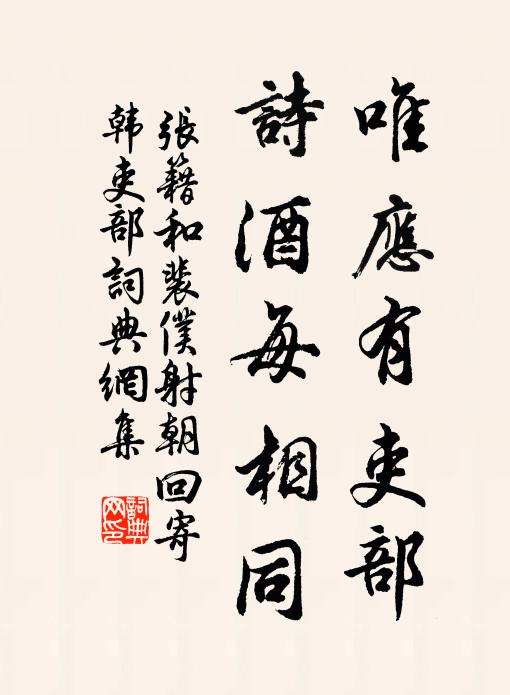 唯應有吏部
詩酒每相同
張籍和裴僕射朝回寄
韩吏部詞典網集
詞典
网印